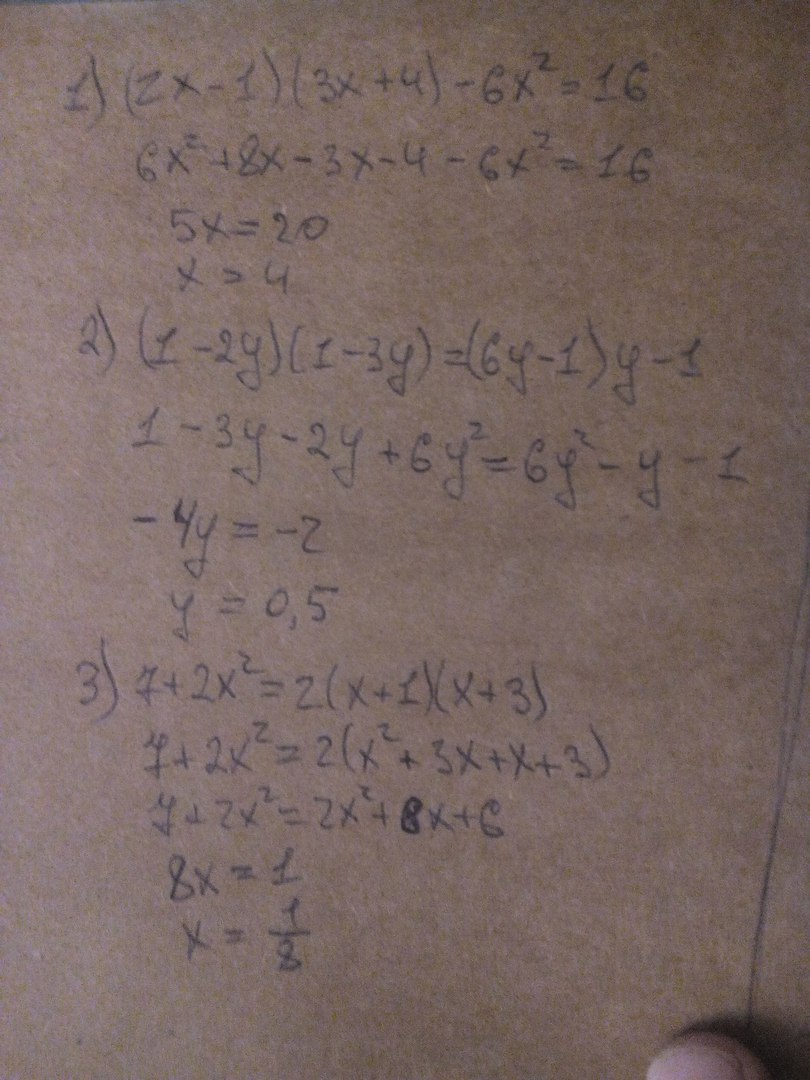 1) (2x-1)(3x+4)-6x²=16
6x²+8x-3x-4-6x²=16
5x=20
x=4
2) (1-2y)(1-3y)=(6y-1)y-1
1-3y-2y+6y²=6y²-y-1
-4y=-2
y=0,5
3) 7+2x²=2(x+1)(x+3)
7+2x²=2(x²+3x+x+3)
7+2x²=2x²+8x+6
8x=1
x=1/8